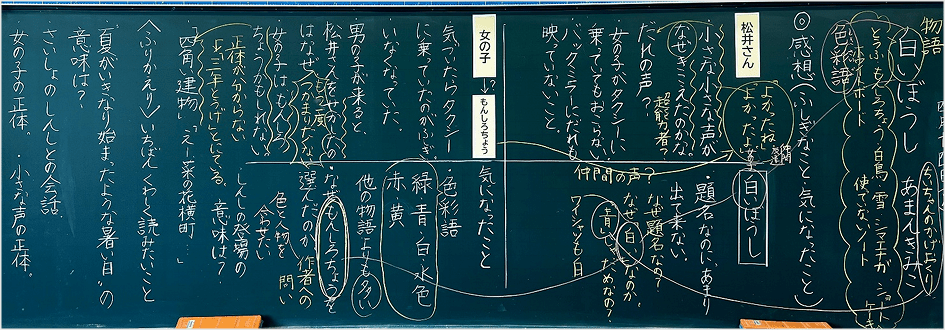 物語
白いぼうし　あまんきみこ
ちいちゃんのかげおくり
とうふ・もんしろちょう・白鳥・雪・シマエナガ
使ってないノート
色彩語
◎感想(ふしぎなこと・気になったこと)
松井さん
よかったね
よかったよ
・小さな小さな声が
なぜきこえたのかな。
だれの声?
超能力者?
・女の子がタクシーに
乗っていてもおこらない
・バックミラーにだれも
映っていないこと。
女の子
↓?
もんしろちょう
・気づいたらタクシー
に乗ってたのがふしぎ。
いなくなっていた。
・男の子が来ると
松井さんをせかしたの
はなぜ?(つかまりたくない)
もう一度
・女の子はもんしろ
ちょうかもしれない
正体が分からない
・四角い建物
「え・・菜の花横町・・」
〈ふりかえり〉いちばんくわしく読みたいこと
・夏がいきなり始まったような暑い日"の
意味は?
・さいしょのしんしとの会話
・女の子の正体。　・小さな声の正体。
仲間の声?
白いぼうし
・題名なのに、あまり
出て来ない。
なぜ題名なの?
なぜ白いなのか。
青い
ためなの?
ワイシャツも白
気になったこと
・色彩語
緑　青　白　水色
赤　黄
他の物語よりも多い
・なぜもんしろちょうを
選んだのか
作者への
問い
色と人物を
合せたい
・しんしの登場の
意味は?